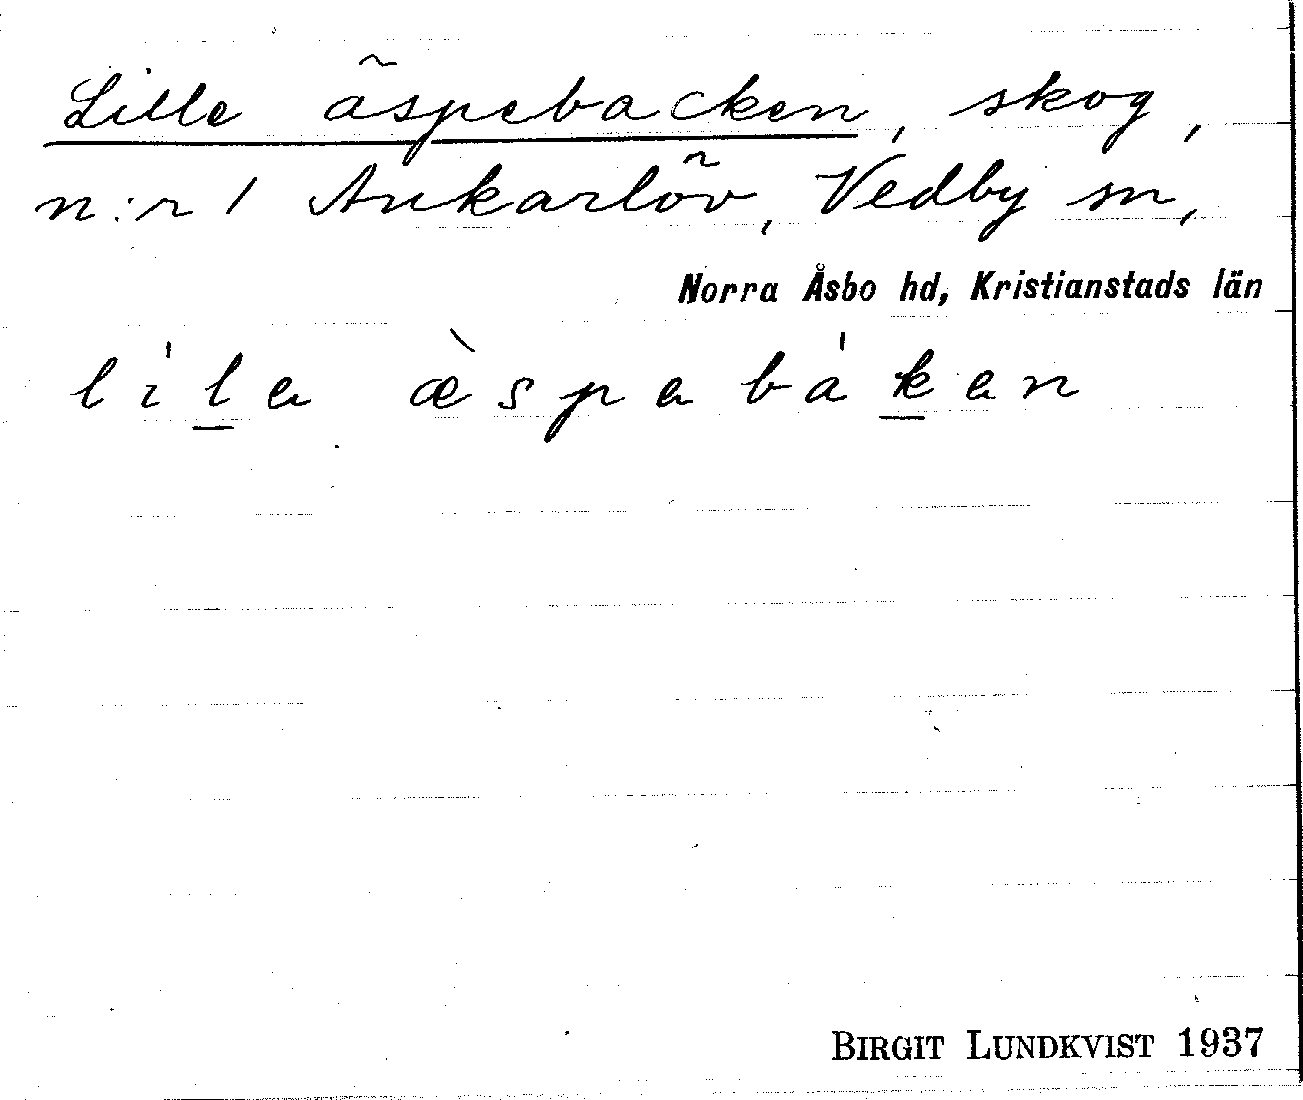 Lille äspebacken, skog,
n:r 1 Ankarlöv, Vedby sn,
Norra Åsbo hd, Kristianstads län
líla æ̀spabákan
BIRGIT LUNDKVIST 1937